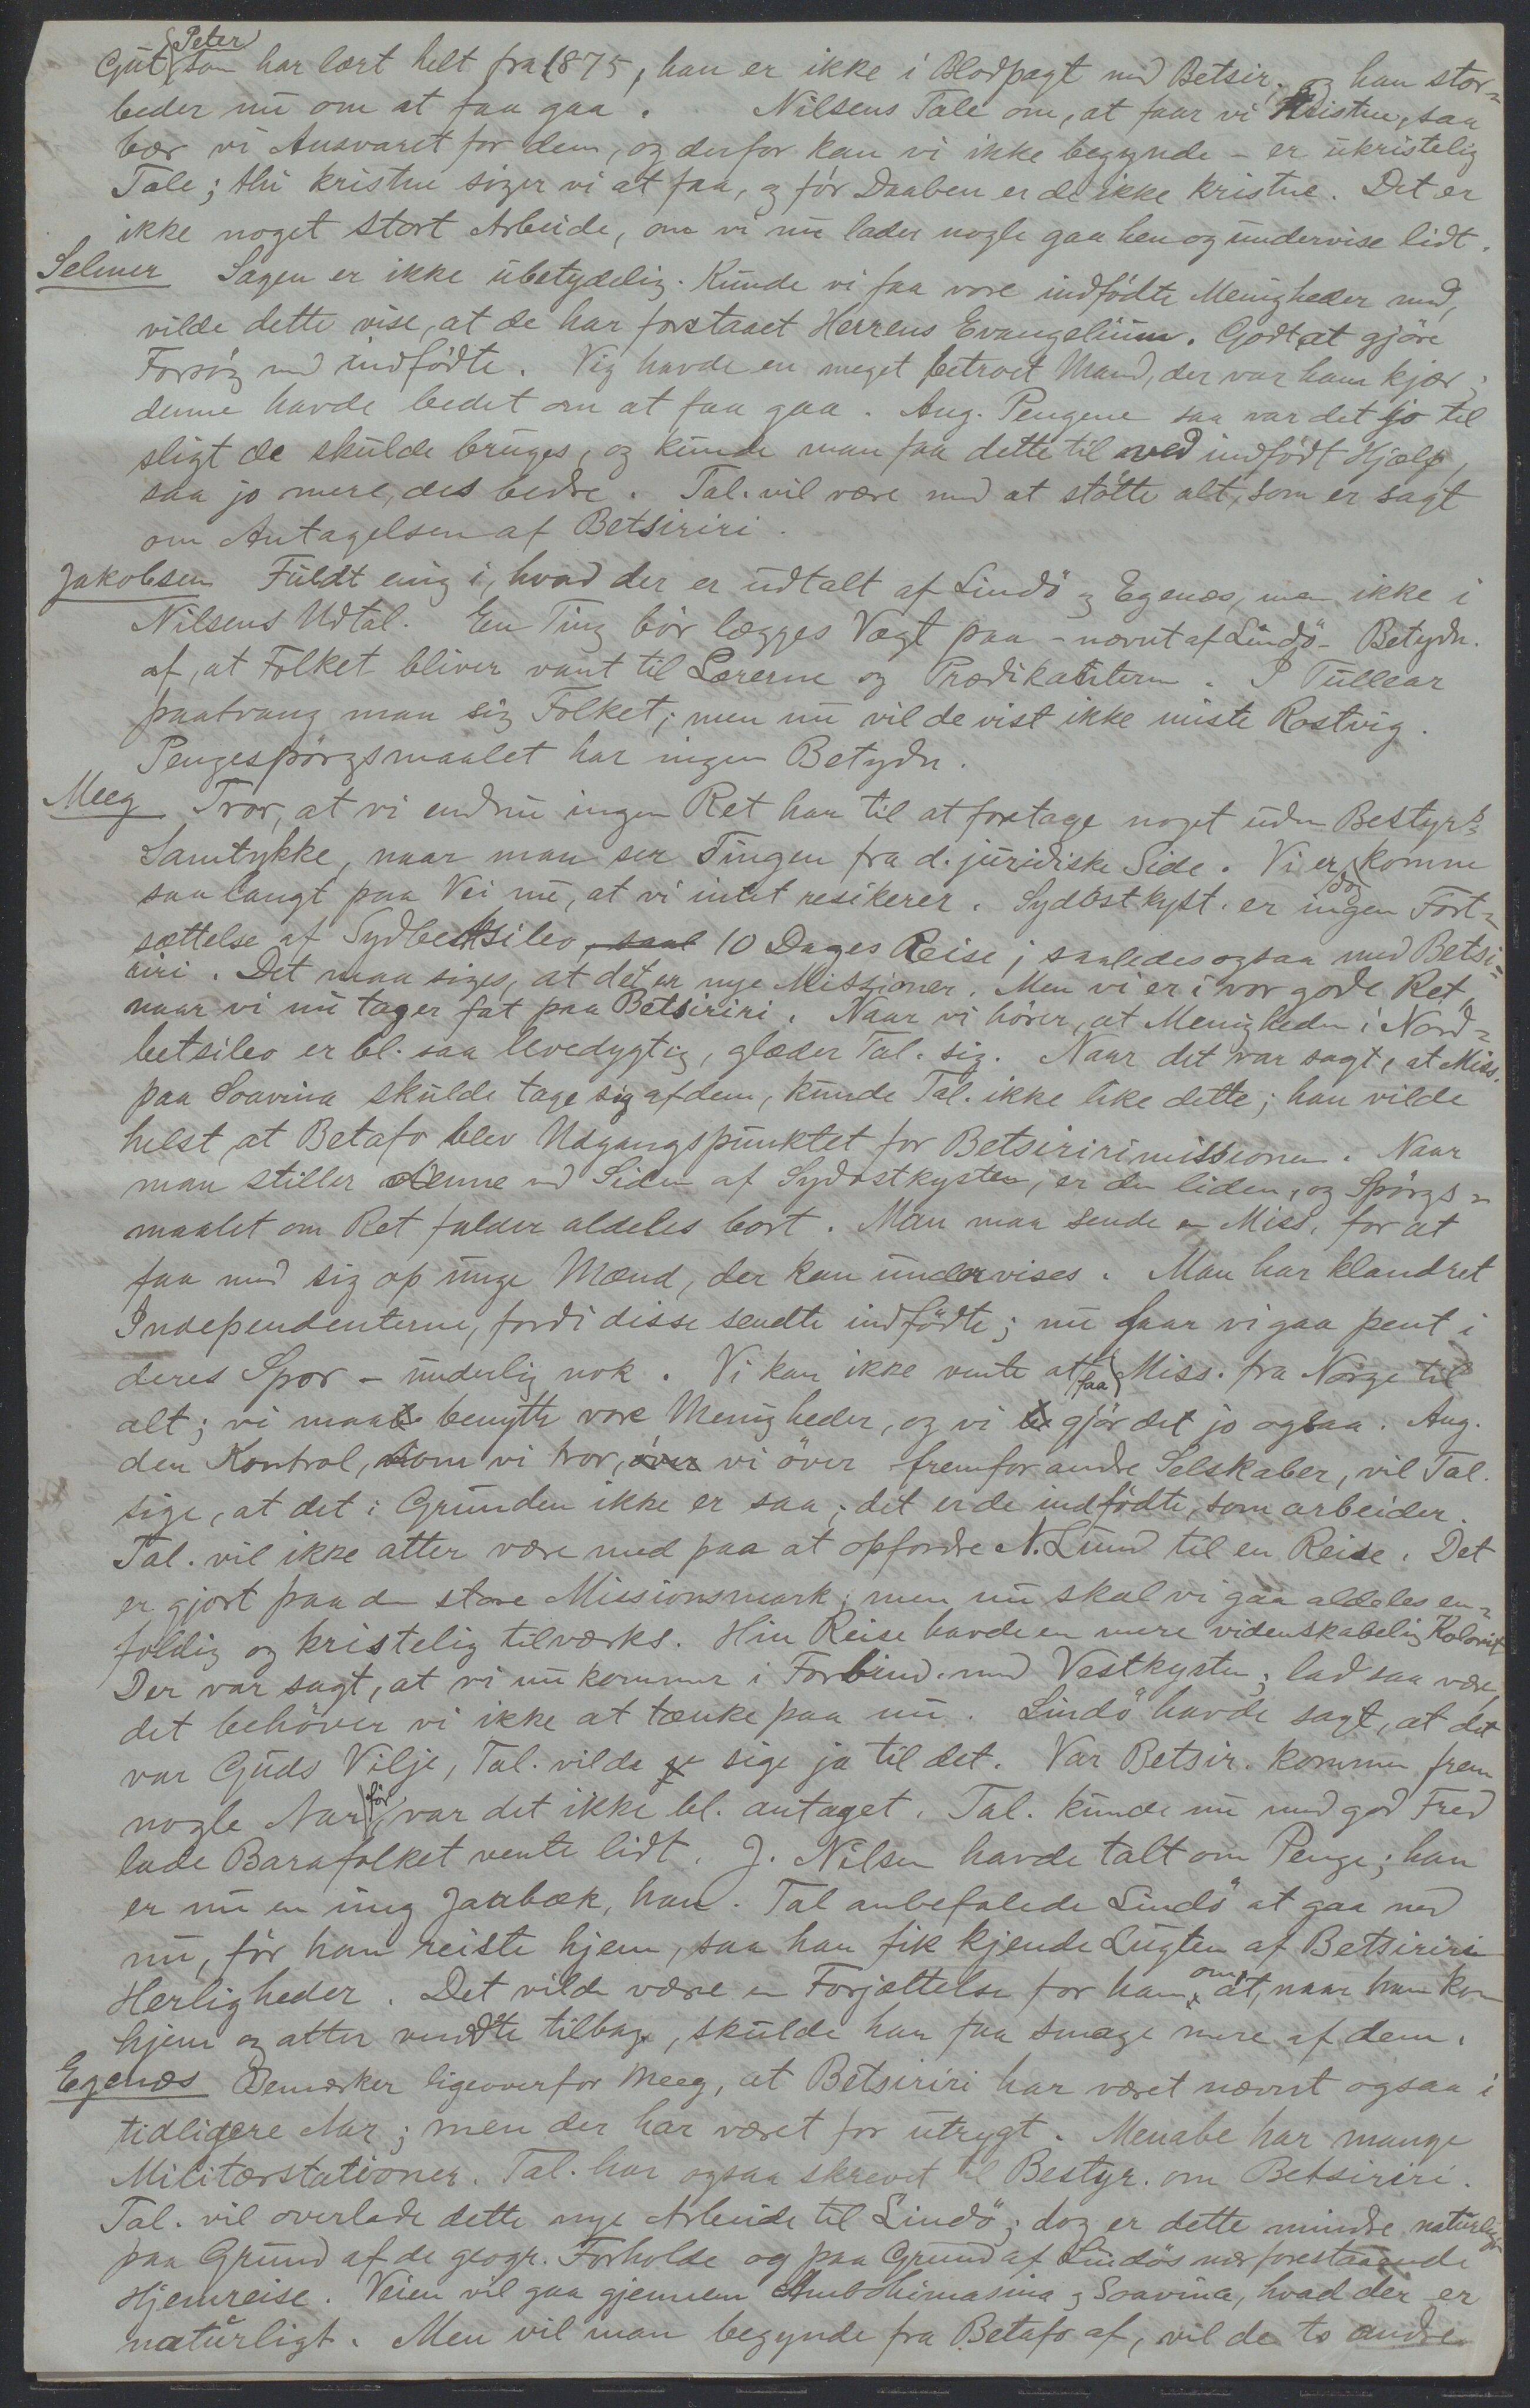 Gut, Peter som har lært helt fra 1875, han er ikke i Blodpagt med Betsir. og han stor-
beder nu om at faa gaa. Nilsens Tale om, at faar vi Kristne, saa
bær vi Ansvaret for dem, og derfor kan vi ikke begynde - er ukristelig
Tale; thi kristne siger vi at faa, og før Daaben er de ikke kristne. Det er
ikke noget stort Arbeide, om vi nu lader nogle gaa hen og undervise lidt.
Selmer Sagen er ikke ubetydelig. Kunde vi faa vore indfødte Menigheder med,
vilde dette vise, at de har forstaaet Herrens Evangelium. Godt at gjøre
Forsøg med indfødte. Vig havde en meget betroet Mand, der var ham kjær;
denne havde bedet om at faa gaa. Ang. Pengene saa var det jo til
sligt de skulde bruges, og kunde man faa dette til ved indfødt Hjælp,
saa jo mere, des bedre. Tal. vil være med at støtte alt, som er sagt
om Antagelsen af Betsiriri.
Jakobsen Fuldt enig i, hvad der er udtalt af Lindø og Egenæs, men ikke i
Nilsens Udtal. En Ting bør lægges Vægt paa - nævnt af Lindø - Betydn.
af, at Folket bliver vant til Lærerne og Prædikanterne. I Tullear
paatvang man sig Folket; men nu vil de vist ikke miste Rostvig.
Pengespørgsmaalet har ingen Betydn.
Meeg Tror, at vi endnu ingen Ret har til at foretage noget uden Bestyrs
Samtykke, naar man ser Tingen fra d. juridiske Side. Vi er dog komne
saa langt paa Vei nu, at vi intet resikerer. Sydøstkyst. er ingen Fort-
sættelse af Sydbetsileo, 10 Dages Reise; saaledes ogsaa med Betsi-
riri. Det maa siges, at det er nye Missioner. Men vi er i vor gode Ret,
naar vi nu tager fat paa Betsiriri. Naar vi hører, at Menigheden i Nord-
betsileo er bl. saa levedygtig, glæder Tal. sig. Naar det var sagt, at Miss.
paa Soavina skulde tage sig af dem, kunde Tal. ikke like dette; han vilde
helst, at Betafo blev Udgangspunktet for Betsiririmissionen. Naar
man stiller denne ved Siden af Sydøstkysten, er den liden, og Spørgs-
maalet om Ret falder aldeles bort. Man maa sende en Miss. for at
faa med sig op unge Mænd, der kan undervises. Man har klandret
Independenterne, fordi disse sendte indfødte; nu faar vi gaa pent i
deres Spor - underlig nok. Vi kan ikke vente at faa Miss. fra Norge til
alt; vi maa benytte vore Menigheder, og vi gjør det jo ogsaa. Ang.
den Kontrol, som vi tror, vi øver fremfor andre Selskaber, vil Tal.
sige, at det i Grunden ikke er saa; det er de indfødte, som arbeider.
Tal. vil ikke atter være med paa at opfordre N. Lund til en Reise. Det
er gjort paa den store Missionsmark; men nu skal vi gaa aldeles en-
foldig og kristelig tilværks. Hin Reise havde en mere videnskabelig Kolorit.
Der var sagt, at vi nu kommer i Forbind. med Vestkysten; lad saa være,
det behøver vi ikke at tænke paa nu. Lindø havde sagt, at det
var Guds Vilje, Tal. vilde sige ja til det. Var Betsir. kommen frem
nogle Aar før, var det ikke bl. antaget. Tal. kunde nu med god Fred
lade Barafolket vente lidt. J. Nilsen havde talt om Penge; han
er nu en ung Jaabæk, han. Tal anbefalede Lindø at gaa ned
nu, før han reiste hjem, saa han fik kjende Lugten af Betsiriris
Herligheder. Det vilde være en Forjættelse for ham om, at, naar han kom
hjem og atter vendte tilbage, skulde han faa smage mere af dem.
Egenæs Bemærker ligeoverfor Meeg, at Betsiriri har været nævnt ogsaa i
tidligere Aar; men der har været for utrygt. Menabe har mange
Militærstationer. Tal. har ogsaa skrevet til Bestyr. om Betsiriri.
Tal. vil overlade dette nye Arbeide til Lindø; dog er dette mindre naturligt
paa Grund af de geogr. Forholde og paa Grund af Lindøs nær forestaaende
Hjemreise. Veien vil gaa gjennem Ambohimasina og Soavina, hvad der er
naturligt. Men vil man begynde fra Betafo af, vil de to andre